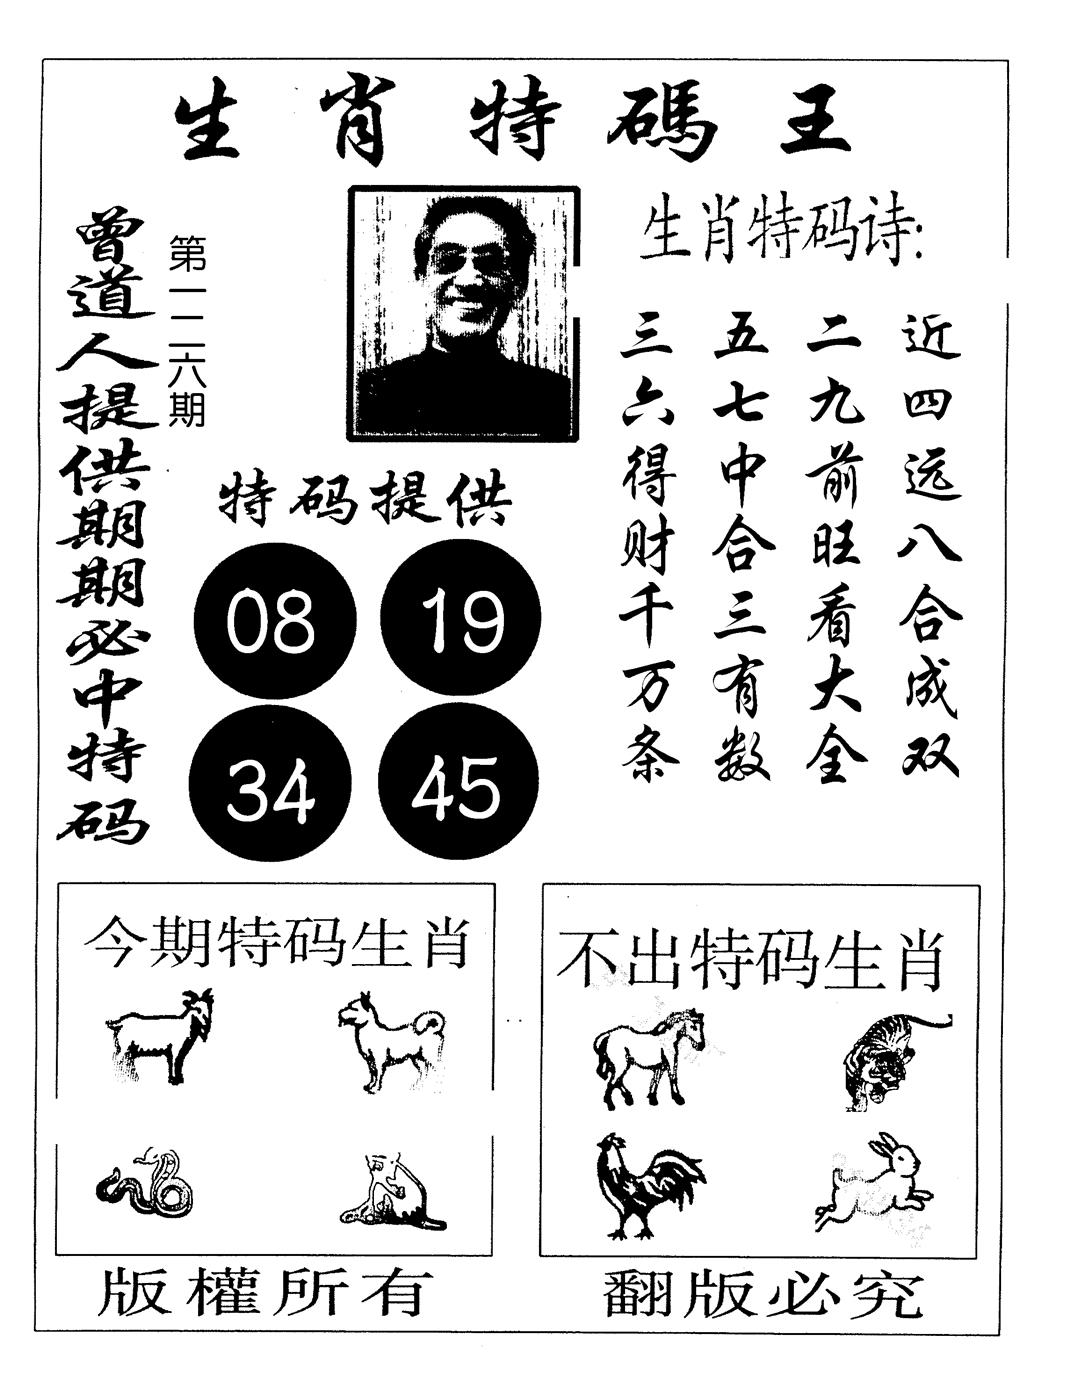 生肖特碼王
曾道人提供期期必中特码
第一二六期
生肖特码诗:
近四远八合成双
二九前旺看大全
五七中合三有数
三六得财千万条
特码提供
08 19
34 45
今期特码生肖
不出特码生肖
版權所有
翻版必究